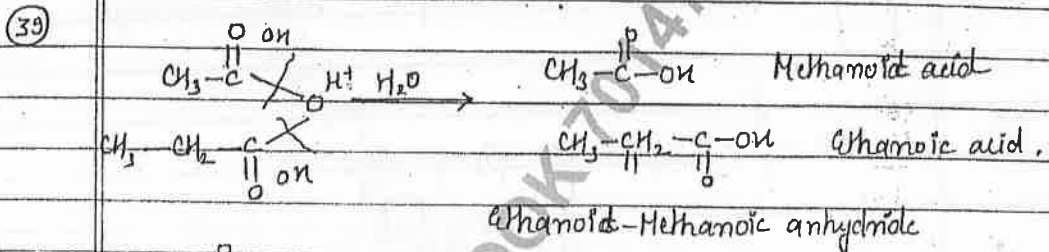 39
O OH
CH3-C
O H+ H2O
CH3-CH2-C
O OH
O
CH3-C-OH Methanoic acid
CH3-CH2-C-OH Ethanoic acid.
O
Ethanoic-Methanoic anhydride